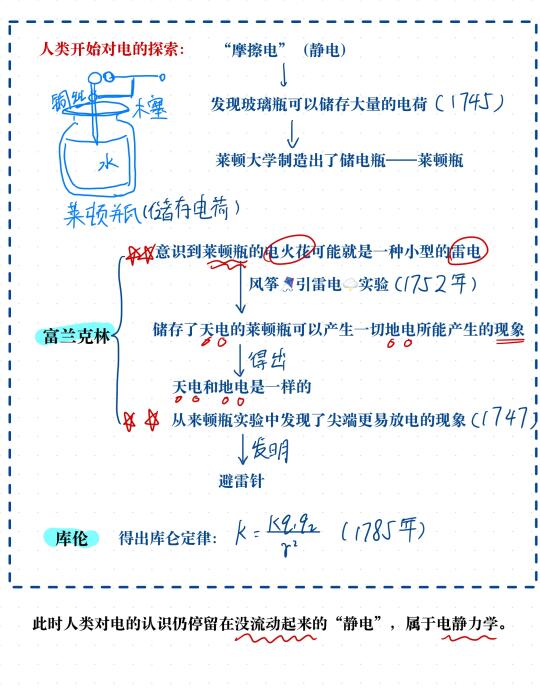 人类开始对电的探索：
“摩擦电”（静电）
发现玻璃瓶可以储存大量的电荷（1745）
莱顿大学制造出了储电瓶——莱顿瓶
铜丝
木塞
水
莱顿瓶（储存电荷）
意识到莱顿瓶的电火花可能就是一种小型的雷电
风筝🪁引雷电🌩️实验（1752年）
富兰克林
储存了天电的莱顿瓶可以产生一切地电所能产生的现象
得出
天电和地电是一样的
从来顿瓶实验中发现了尖端更易放电的现象（1747）
发明
避雷针
库伦 得出库仑定律： k = kq₁q₂/r² （1785年）
此时人类对电的认识仍停留在没流动起来的“静电”，属于电静力学。